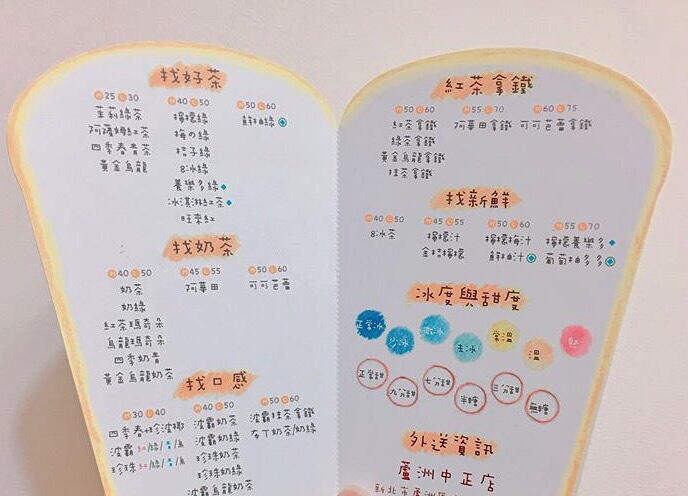 找好茶
M 25 L 30
茉莉綠茶
阿薩姆紅茶
四季春青茶
黃金烏龍
M 40 L 50
檸檬綠
梅の綠
桔子綠
8冰綠
養樂多綠
冰淇淋紅茶
旺來紅
M 50 L 60
鮮柚綠
找奶茶
M 40 L 50
奶茶
奶綠
紅茶瑪奇朵
烏龍瑪奇朵
四季奶青
黃金烏龍奶茶
M 45 L 55
阿華田
M 50 L 60
可可芭蕾
找口感
M 30 L 40
四季春+珍波椰
波霸 紅/綠/青/烏
珍珠 紅/綠/青/烏
M 40 L 50
波霸奶茶
波霸奶綠
珍珠奶茶
珍珠奶綠
波霸烏龍奶茶
M 50 L 60
波霸紅茶拿鐵
布丁奶茶/奶綠
紅茶拿鐵
M 50 L 60
紅茶拿鐵
綠茶拿鐵
黃金烏龍拿鐵
M 55 L 70
阿華田拿鐵
M 60 L 75
可可芭蕾拿鐵
找新鮮
M 40 L 50
8冰茶
M 45 L 55
檸檬汁
金桔檸檬
M 50 L 60
檸檬梅汁
鮮柚汁
M 55 L 70
檸檬養樂多
葡萄柚多多
冰度與甜度
正常冰
少冰
微冰
去冰
常溫
溫
熱
正常甜
九分甜
七分甜
半糖
三分甜
無糖
外送資訊
蘆洲中正店
新北市蘆洲區